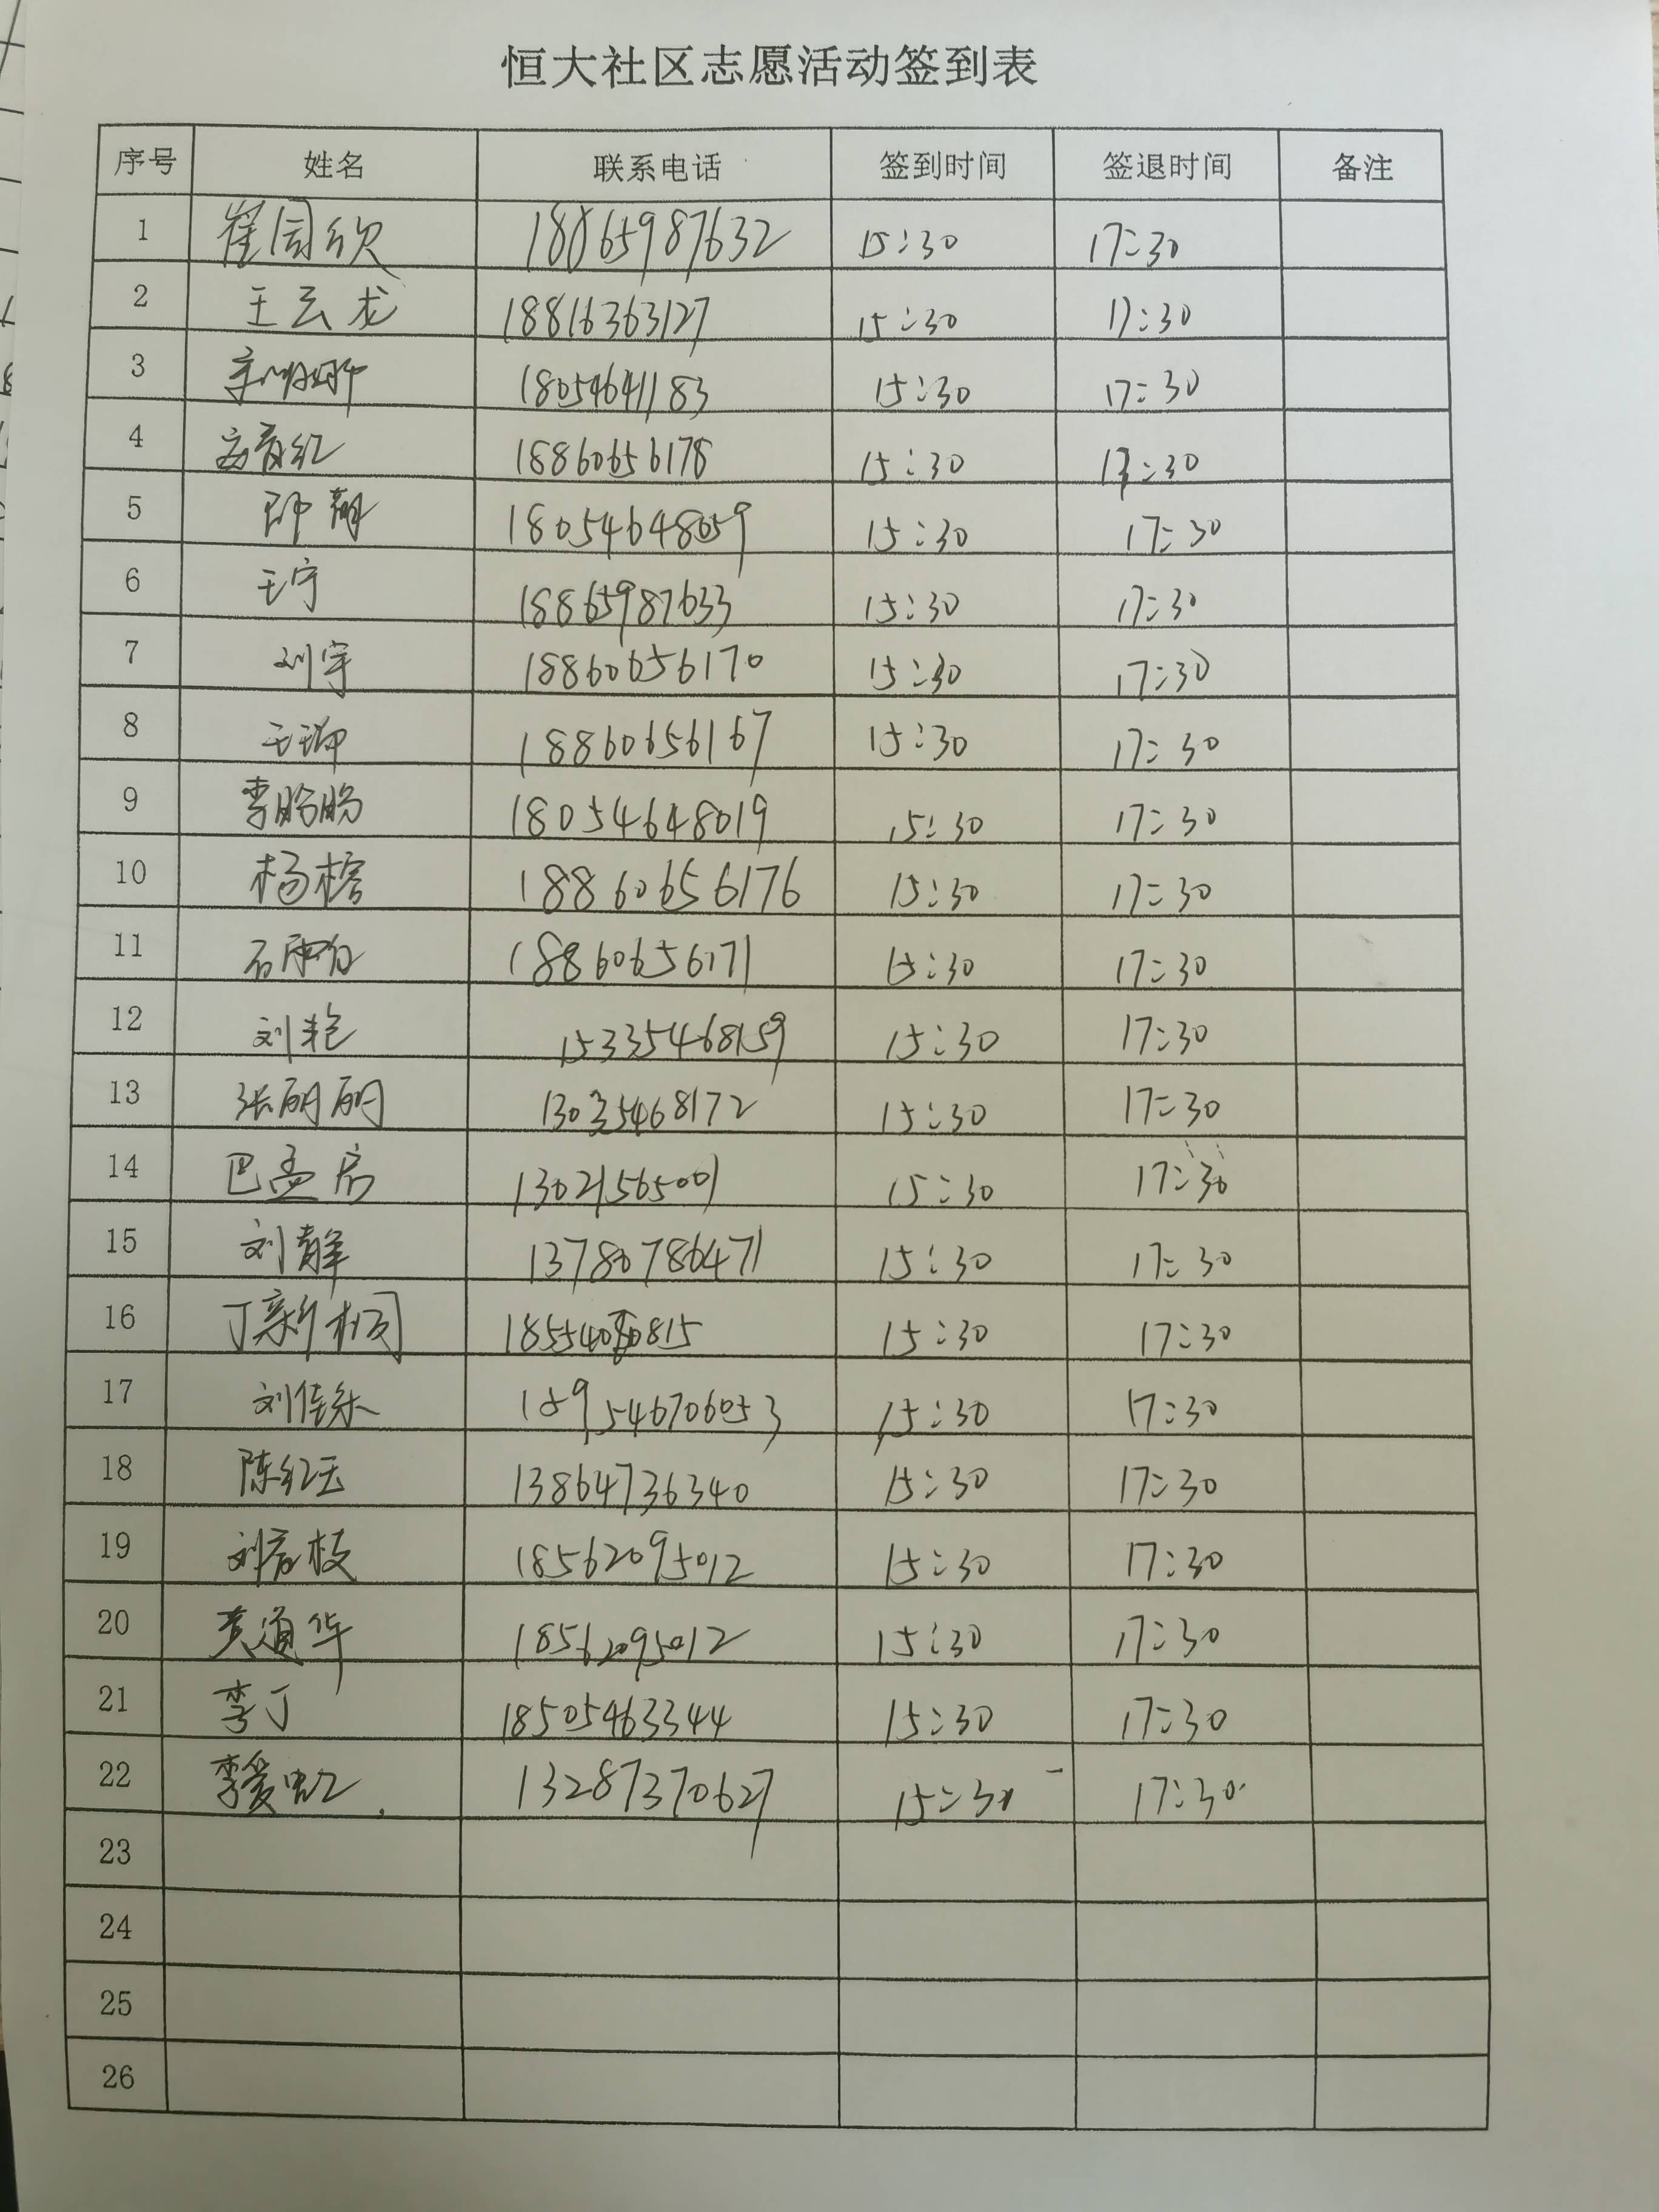 恒大社区志愿活动签到表
序号 姓名 联系电话 签到时间 签退时间 备注
1 崔园欣 18865987632 15:30 17:30
2 王云龙 18816363127 15:30 17:30
3 18054641183 15:30 17:30
4 18860656178 15:30 17:30
5 18054648059 15:30 17:30
6 王宁 18865987633 15:30 17:30
7 刘宇 18860656170 15:30 17:30
8 王瑞 18860656167 15:30 17:30
9 李盼盼 18054648019 15:30 17:30
10 杨榕 18860656176 15:30 17:30
11 18860656171 15:30 17:30
12 刘艳 15335468159 15:30 17:30
13 张丽丽 13035468172 15:30 17:30
14 巴孟启 13021565001 15:30 17:30
15 刘静 13780786471 15:30 17:30
16 丁新桐 15:30 17:30
17 刘佳乐 159546706053 15:30 17:30
18 陈红玉 13864736340 15:30 17:30
19 刘君枝 18562095012 15:30 17:30
20 黄道华 18562095012 15:30 17:30
21 李丁 18505463344 15:30 17:30
22 李爱虹 13287370627 15:30 17:30
23
24
25
26